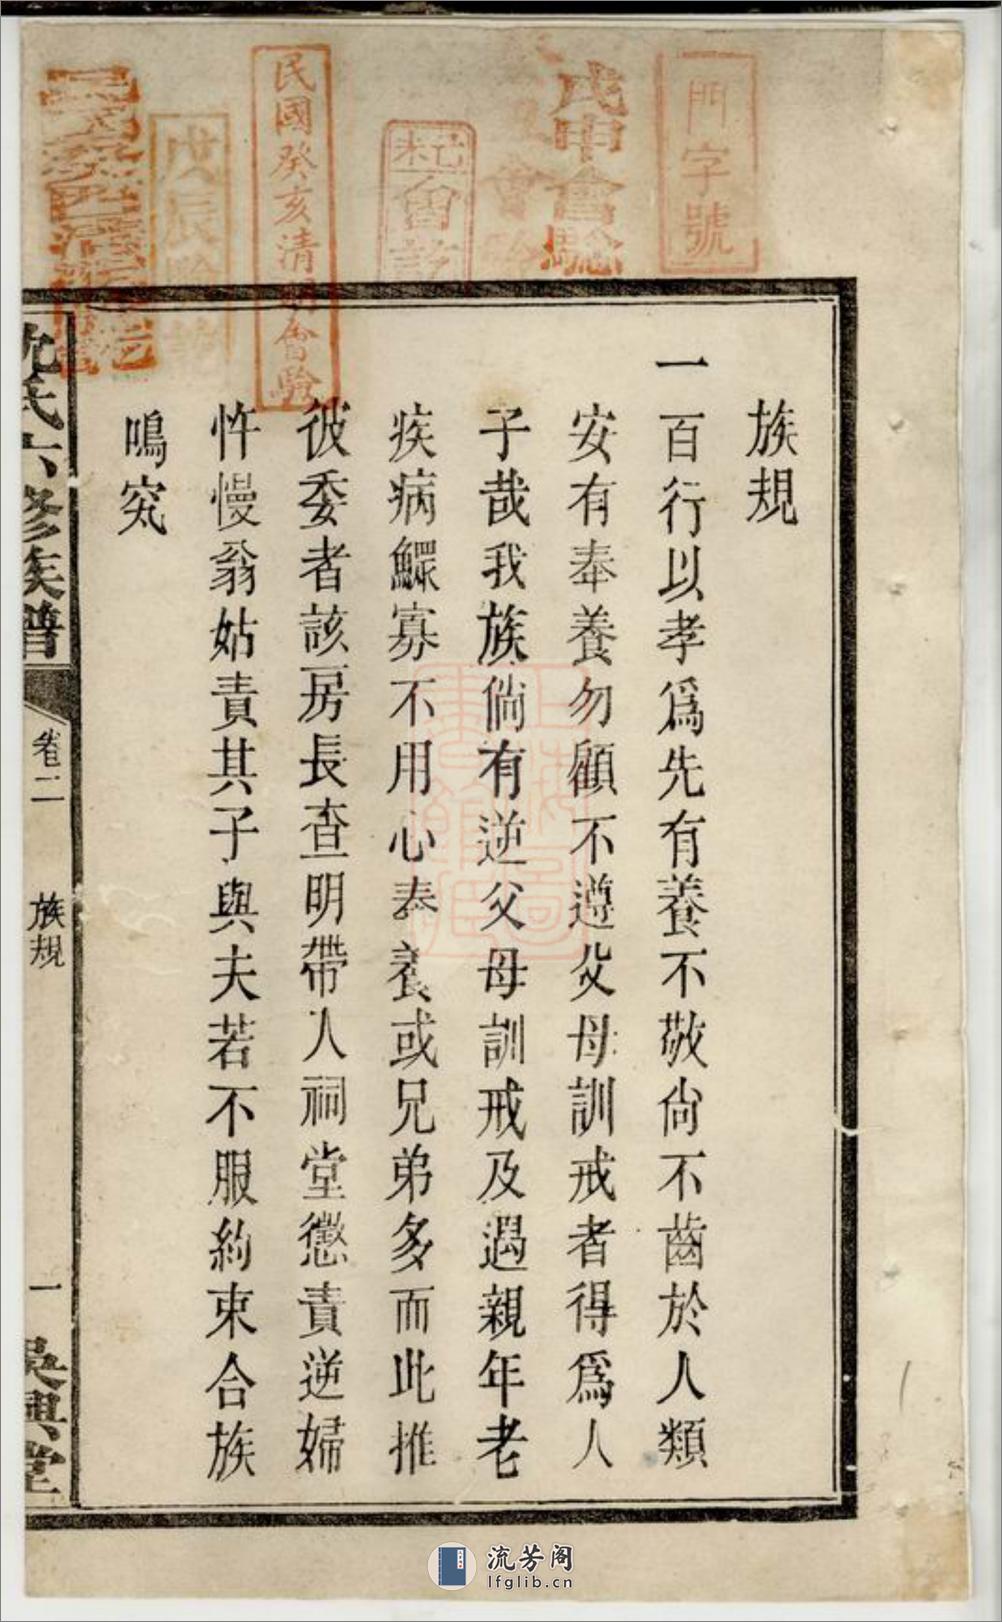 門字號
戊申會驗
民國癸亥清明會驗
族規
一百行以孝爲先有養不敬尙不齒於人類
安有奉養勿顧不遵父母訓戒者得爲人
子哉我族倘有逆父母訓戒及遇親年老
疾病鰥寡不用心奉養或兄弟多而此推
彼委者該房長查明帶人祠堂懲責逆婦
忤慢翁姑責其子與夫若不服約束合族
鳴究
沈氏六修族譜
卷二
族規
一
吳興堂
流芳阁
lfglib.cn